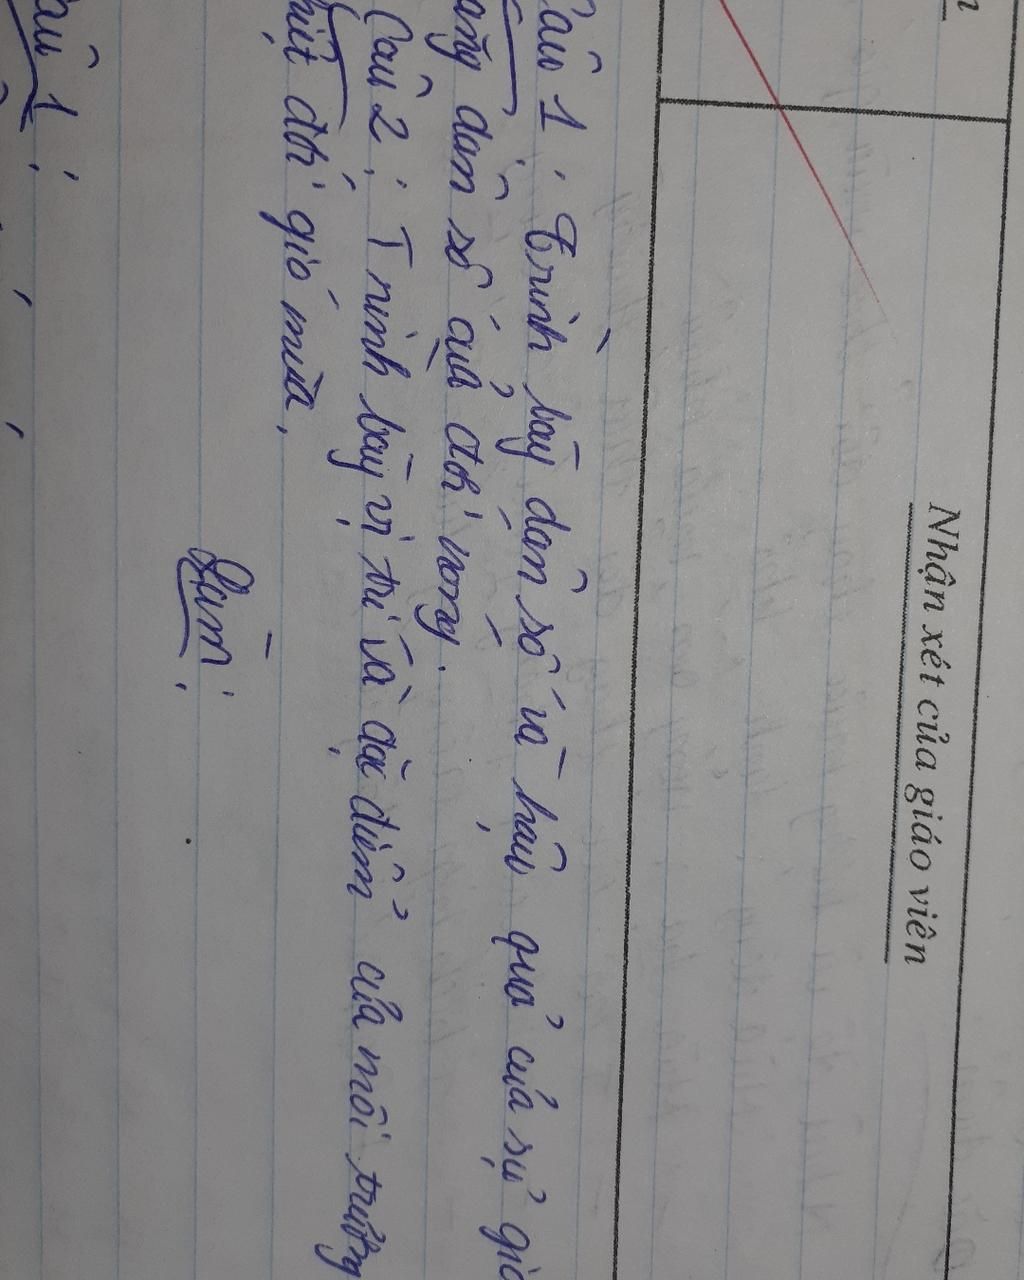 Nhận xét của giáo viên
Câu 1: Trình bày dân số và hậu quả của sự gia
tăng dân số của đới nóng.
Câu 2: Trình bày vị trí và đặc điểm của môi trường
nhiệt đới gió mùa.
Làm:
Câu 1: